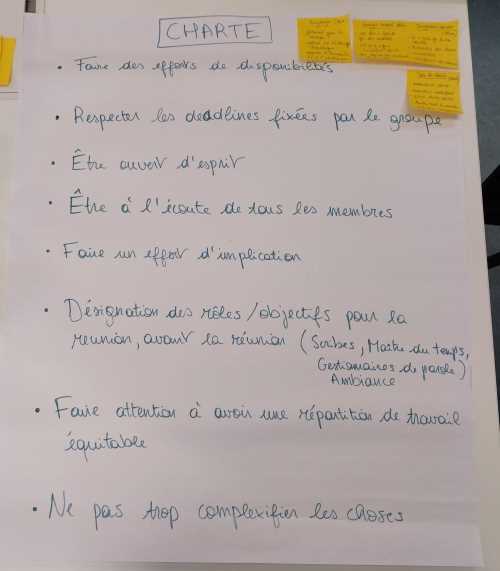 CHARTE
• Faire des efforts de disponibilités
• Respecter les deadlines fixées par le groupe
• Être ouvert d'esprit
• Être à l'écoute de tous les membres
• Faire un effort d'implication
• Désignation des rôles/objectifs pour la
réunion, avant la réunion (Scribes, Maitre du temps,
Gestionnaires de parole)
Ambiance
• Faire attention à avoir une répartition de travail
équitable
• Ne pas trop complexifier les choses